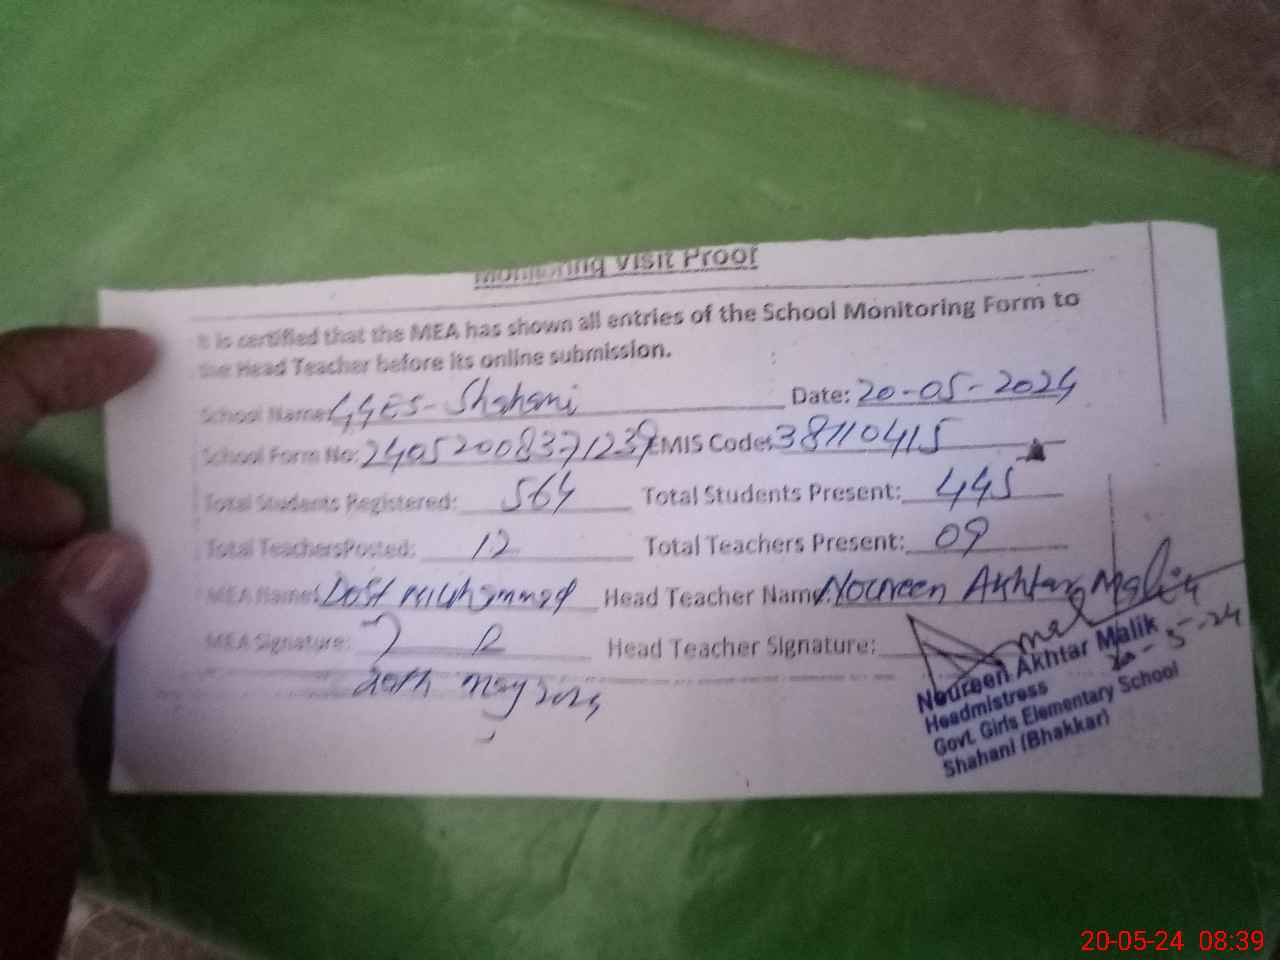 Monitoring Visit Proof
It is certified that the MEA has shown all entries of the School Monitoring Form to
the Head Teacher before its online submission.
School Name: GGES-Shahani Date: 20-05-2024
School Form No: 24052008371239 EMIS Code: 38110415
Total Students Registered: 564 Total Students Present: 445
Total TeachersPosted: 12 Total Teachers Present: 09
MEA Name: Dost Muhammad Head Teacher Name: Noureen Akhtar Malik
MEA Signature: Head Teacher Signature:
20th May 2024
20-5-24
Noureen Akhtar Malik
Headmistress
Govt. Girls Elementary School
Shahani (Bhakkar)
20-05-24 08:39